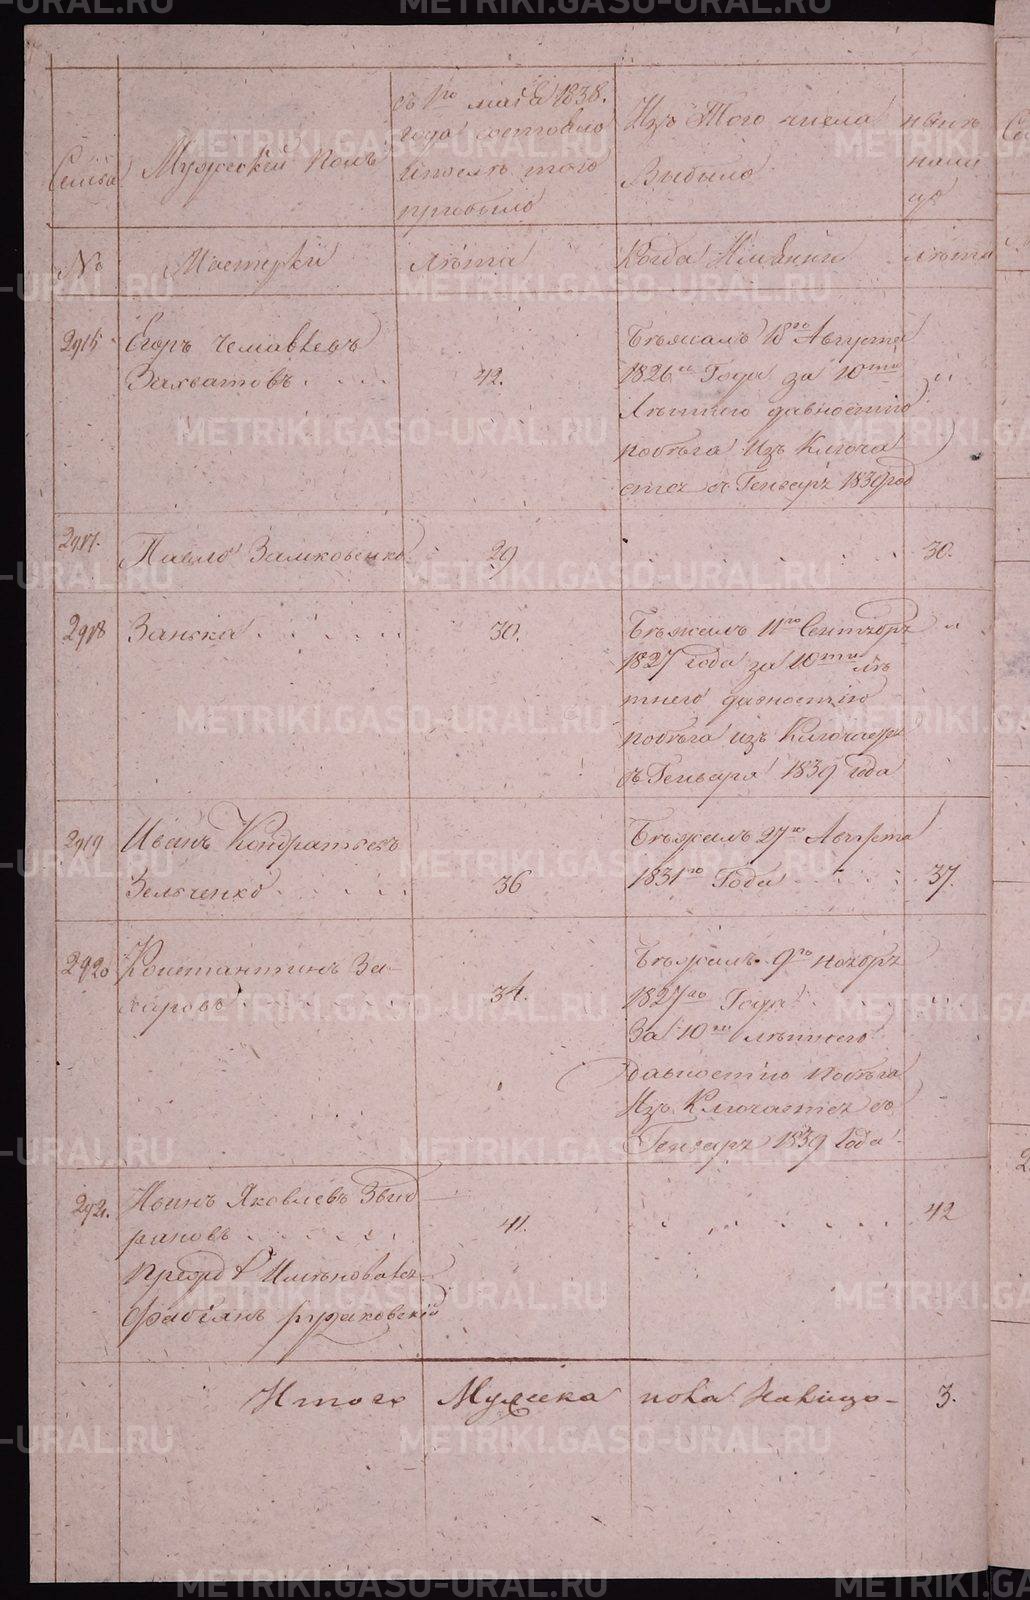 Семьи
Мужескiй полъ
съ 1го маiя 1838.
года состояло
и после того
прибыло
Изъ Того числа
Выбыло
нынѣ
на ли
цо
№
Мастерскiй
Лѣта
Когда Имянни
лѣта
2915
Егоръ
Захватовъ
42.
Бѣжалъ 18го Августа
1826го Года за 10ти
Лѣтнего давностiю
побѣга Изъ Ключа
ется съ Генваря 1839 год
"
2917.
Павло Замковенко
29
30.
2918
Занька
30.
Бѣжалъ 11го Сентября
1827 года за 10ти лѣ
тнего давностiю
побѣга изъ Ключается
съ Генваря 1839 года
"
2919
Иванъ Кондратьевъ
Зельченко
36
Бѣжалъ 27го Августа
1831го Года
37.
2920
Константинъ За
харовъ
34.
Бѣжалъ 9го ноября
1827го Года
За 10ти лѣтнего
давностiю побѣга
Изъ Ключается съ
Генваря 1839 Года
"
2921.
Иванъ Яковлевъ
41.
42
Именовался
Фабiянъ
Итого Мужска пола Налицо
3.
METRIKI.GASO-URAL.RU